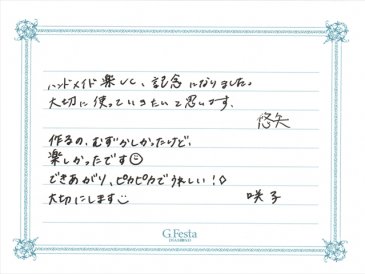 ハンドメイド楽しく、記念になりました。
大切に使っていきたいと思います。
悠矢
作るの、むずかしかったけど、
楽しかったです☺
できあがり、ピカピカでうれしい!◇
大切にします
咲子
G.Festa